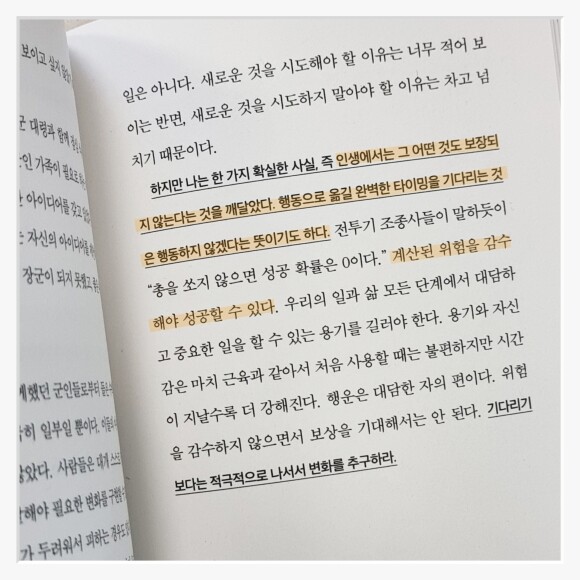 보이고 싶지 않았
군 대령과 함께
인 가족이 필요로
아이디어를 갖고
자신의 아이디어를
장군이 되지 못했고
했던 군인들로부터
히 일부일 뿐이다.
았다. 사람들은 대개
해야 필요한 변화를
가 두려워서 피하는 경우도
일은 아니다. 새로운 것을 시도해야 할 이유는 너무 적어 보
이는 반면, 새로운 것을 시도하지 말아야 할 이유는 차고 넘
치기 때문이다.
하지만 나는 한 가지 확실한 사실, 즉 인생에서는 그 어떤 것도 보장되
지 않는다는 것을 깨달았다. 행동으로 옮길 완벽한 타이밍을 기다리는 것
은 행동하지 않겠다는 뜻이기도 하다. 전투기 조종사들이 말하듯이
“총을 쏘지 않으면 성공 확률은 0이다.” 계산된 위험을 감수
해야 성공할 수 있다. 우리의 일과 삶 모든 단계에서 대담하
고 중요한 일을 할 수 있는 용기를 길러야 한다. 용기와 자신
감은 마치 근육과 같아서 처음 사용할 때는 불편하지만 시간
이 지날수록 더 강해진다. 행운은 대담한 자의 편이다. 위험
을 감수하지 않으면서 보상을 기대해서는 안 된다. 기다리기
보다는 적극적으로 나서서 변화를 추구하라.